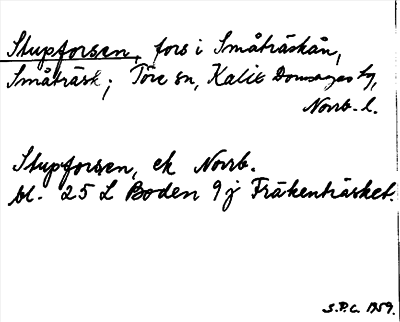 Stupforsen, fors i Småträskån,
Småträsk; Töre sn, Kalix Domsagas tg,
Norrb. l.
Stupforsen, ek Norrb.
bl. 25 L Boden 9 j Fräkenträsket.
S.P.C. 1959.